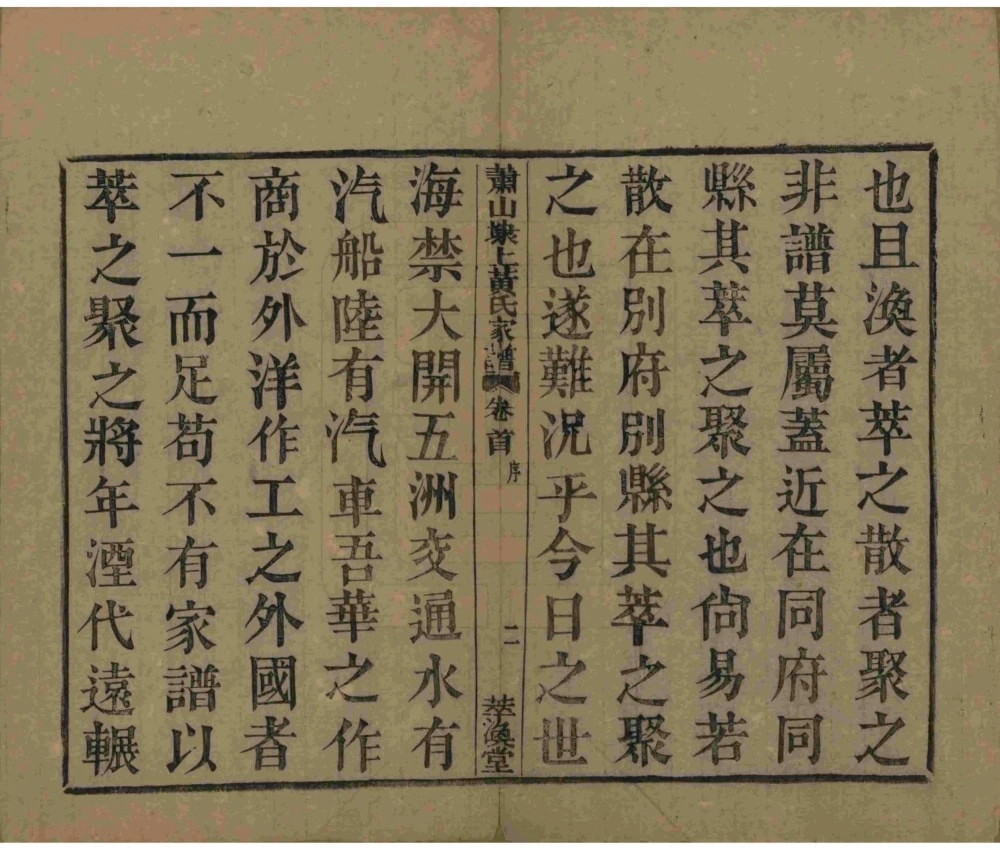 也且渙者萃之散者聚之
非譜莫屬蓋近在同府同
縣其萃之聚之也尙易若
散在別府別縣其萃之聚
之也遂難況乎今日之世
蕭山埭上黃氏家譜 卷首 序 二 萃渙堂
海禁大開五洲交通水有
汽船陸有汽車吾華之作
商於外洋作工之外國者
不一而足苟不有家譜以
萃之聚之將年湮代遠輾